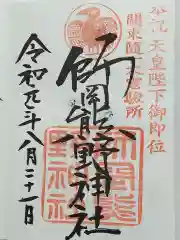 奉祝 天皇陛下御即位
関東随一大霊験所
師岡熊野神社
令和元年八月二十一日